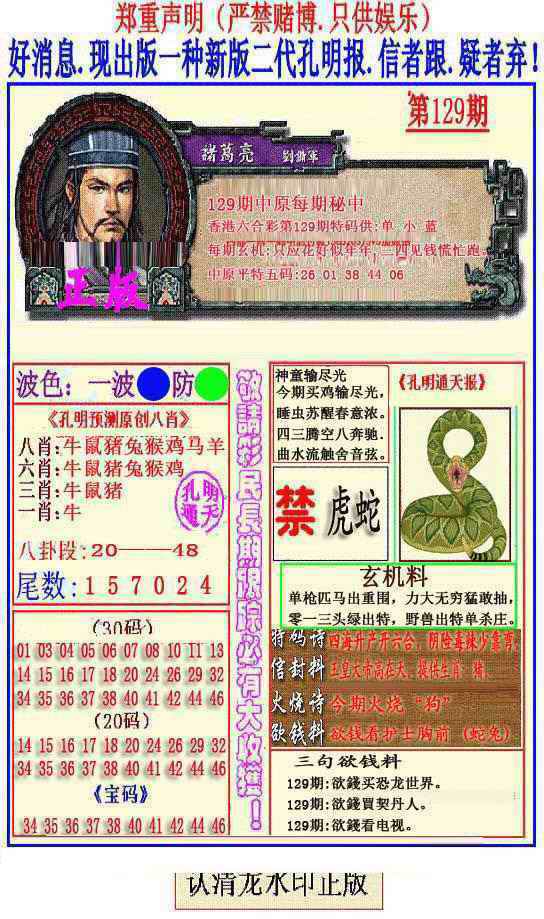 郑重声明（严禁赌博.只供娱乐）
好消息.现出版一种新版二代孔明报.信者跟.疑者弃！
第129期
諸葛亮
129期中原每期秘中
香港六合彩第129期特码供:单 小 蓝
每期玄机:只应花好似年年,一四见钱慌忙跑。
中原平特五码:26 01 38 44 06
正版
波色：一波 防
《孔明预测原创八肖》
八肖:牛鼠猪兔猴鸡马羊
六肖:牛鼠猪兔猴鸡
三肖:牛鼠猪
一肖:牛
孔明
通天
八卦段:20——48
尾数:157024
(30码)
01 03 04 05 06 07 08 10 11 13
14 15 16 17 18 20 24 26 29 32
34 35 36 37 38 40 41 42 44 46
(20码)
14 15 16 17 18 20 24 26 29 32
34 35 36 37 38 40 41 42 44 46
《宝码》
34 35 36 37 38 40 41 42 44 46
敬請彩民長期跟踪必有大收獲！
神童输尽光
今期买鸡输尽光，
睡虫苏醒春意浓。
四三腾空八奔驰.
曲水流触舍音弦。
《孔明通天报》
禁 虎蛇
玄机料
单枪匹马出重围，力大无穷猛敢抽，
零一三头绿出特，野兽出特单杀庄。
特码诗 四海升产开六合，阴险毒辣少靠育；
信封料 玉皇大帝高在天，提供生肖：猪、
火烧诗 今期火烧“狗”
欲钱料 欲钱看护士胸前（蛇兔）
三句欲钱料
129期:欲錢买恐龙世界。
129期:欲錢買契丹人。
129期:欲錢看电视。
认清龙水印正版